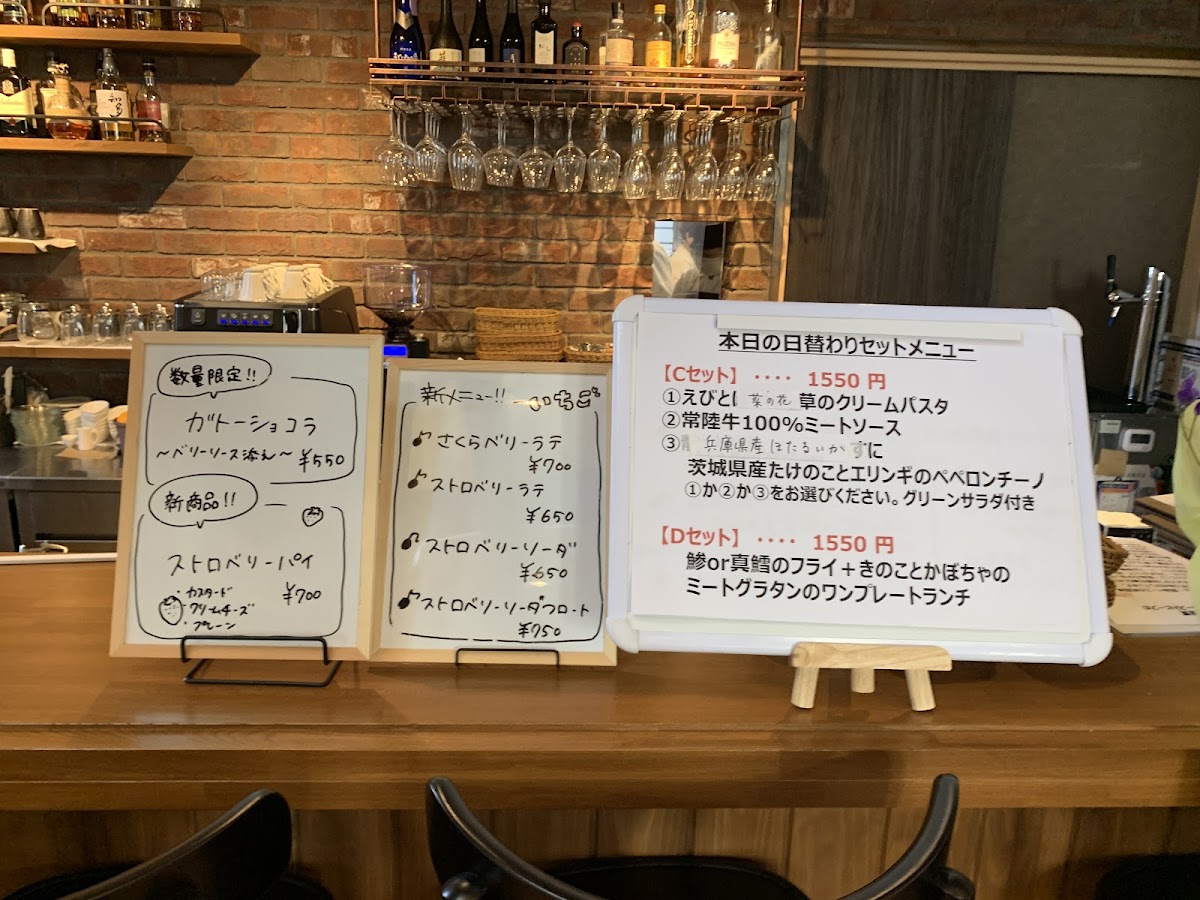 数量限定!!
ガトーショコラ
～ベリーソース添え～ ¥550
新商品!!
ストロベリーパイ
・カスタード
・クリームチーズ
・プレーン
¥700
新メニュー!!
さくらベリーラテ
¥700
ストロベリーラテ
¥650
ストロベリーソーダ
¥650
ストロベリーソーダフロート
¥750
本日の日替わりセットメニュー
【Cセット】 ‥‥ 1550 円
①えびと 菜の花 草のクリームパスタ
②常陸牛100%ミートソース
③ 兵庫県産 ほたるいか ずに
茨城県産たけのことエリンギのペペロンチーノ
①か②か③をお選びください。グリーンサラダ付き
【Dセット】 ‥‥ 1550 円
鯵or真鱈のフライ＋きのことかぼちゃの
ミートグラタンのワンプレートランチ